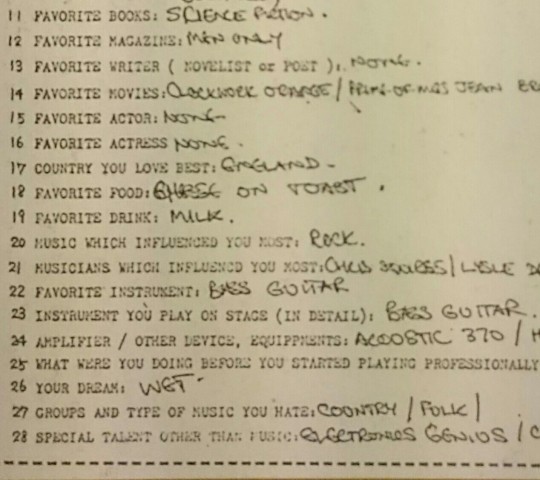 11 FAVORITE BOOKS: SCIENCE FICTION.
12 FAVORITE MAGAZINE: MEN ONLY
13 FAVORITE WRITER ( NOVELIST or POET ):. NONE.
14 FAVORITE MOVIES: CLOCKWORK ORANGE / PRIME-OF-MISS JEAN BR
15 FAVORITE ACTOR: NONE-
16 FAVORITE ACTRESS NONE.
17 COUNTRY YOU LOVE BEST: ENGLAND-
18 FAVORITE FOOD: CHEESE ON TOAST.
19 FAVORITE DRINK: MILK.
20 MUSIC WHICH INFLUENCED YOU MOST: ROCK.
21 MUSICIANS WHICH INFLUENCED YOU MOST: CHRIS SQUIRES /
22 FAVORITE INSTRUMENT: BASS GUITAR
23 INSTRUMENT YOU PLAY ON STAGE (IN DETAIL): BASS GUITAR.
24 AMPLIFIER / OTHER DEVICE, EQUIPPMENTS: ACOOSTIC 370 / H
25 WHAT WERE YOU DOING BEFORE YOU STARTED PLAYING PROFESSIONALLY
26 YOUR DREAM: WET-
27 GROUPS AND TYPE OF MUSIC YOU HATE: COUNTRY / FOLK /
28 SPECIAL TALENT OTHER THAN MUSIC: ELECTRONICS GENIUS / C